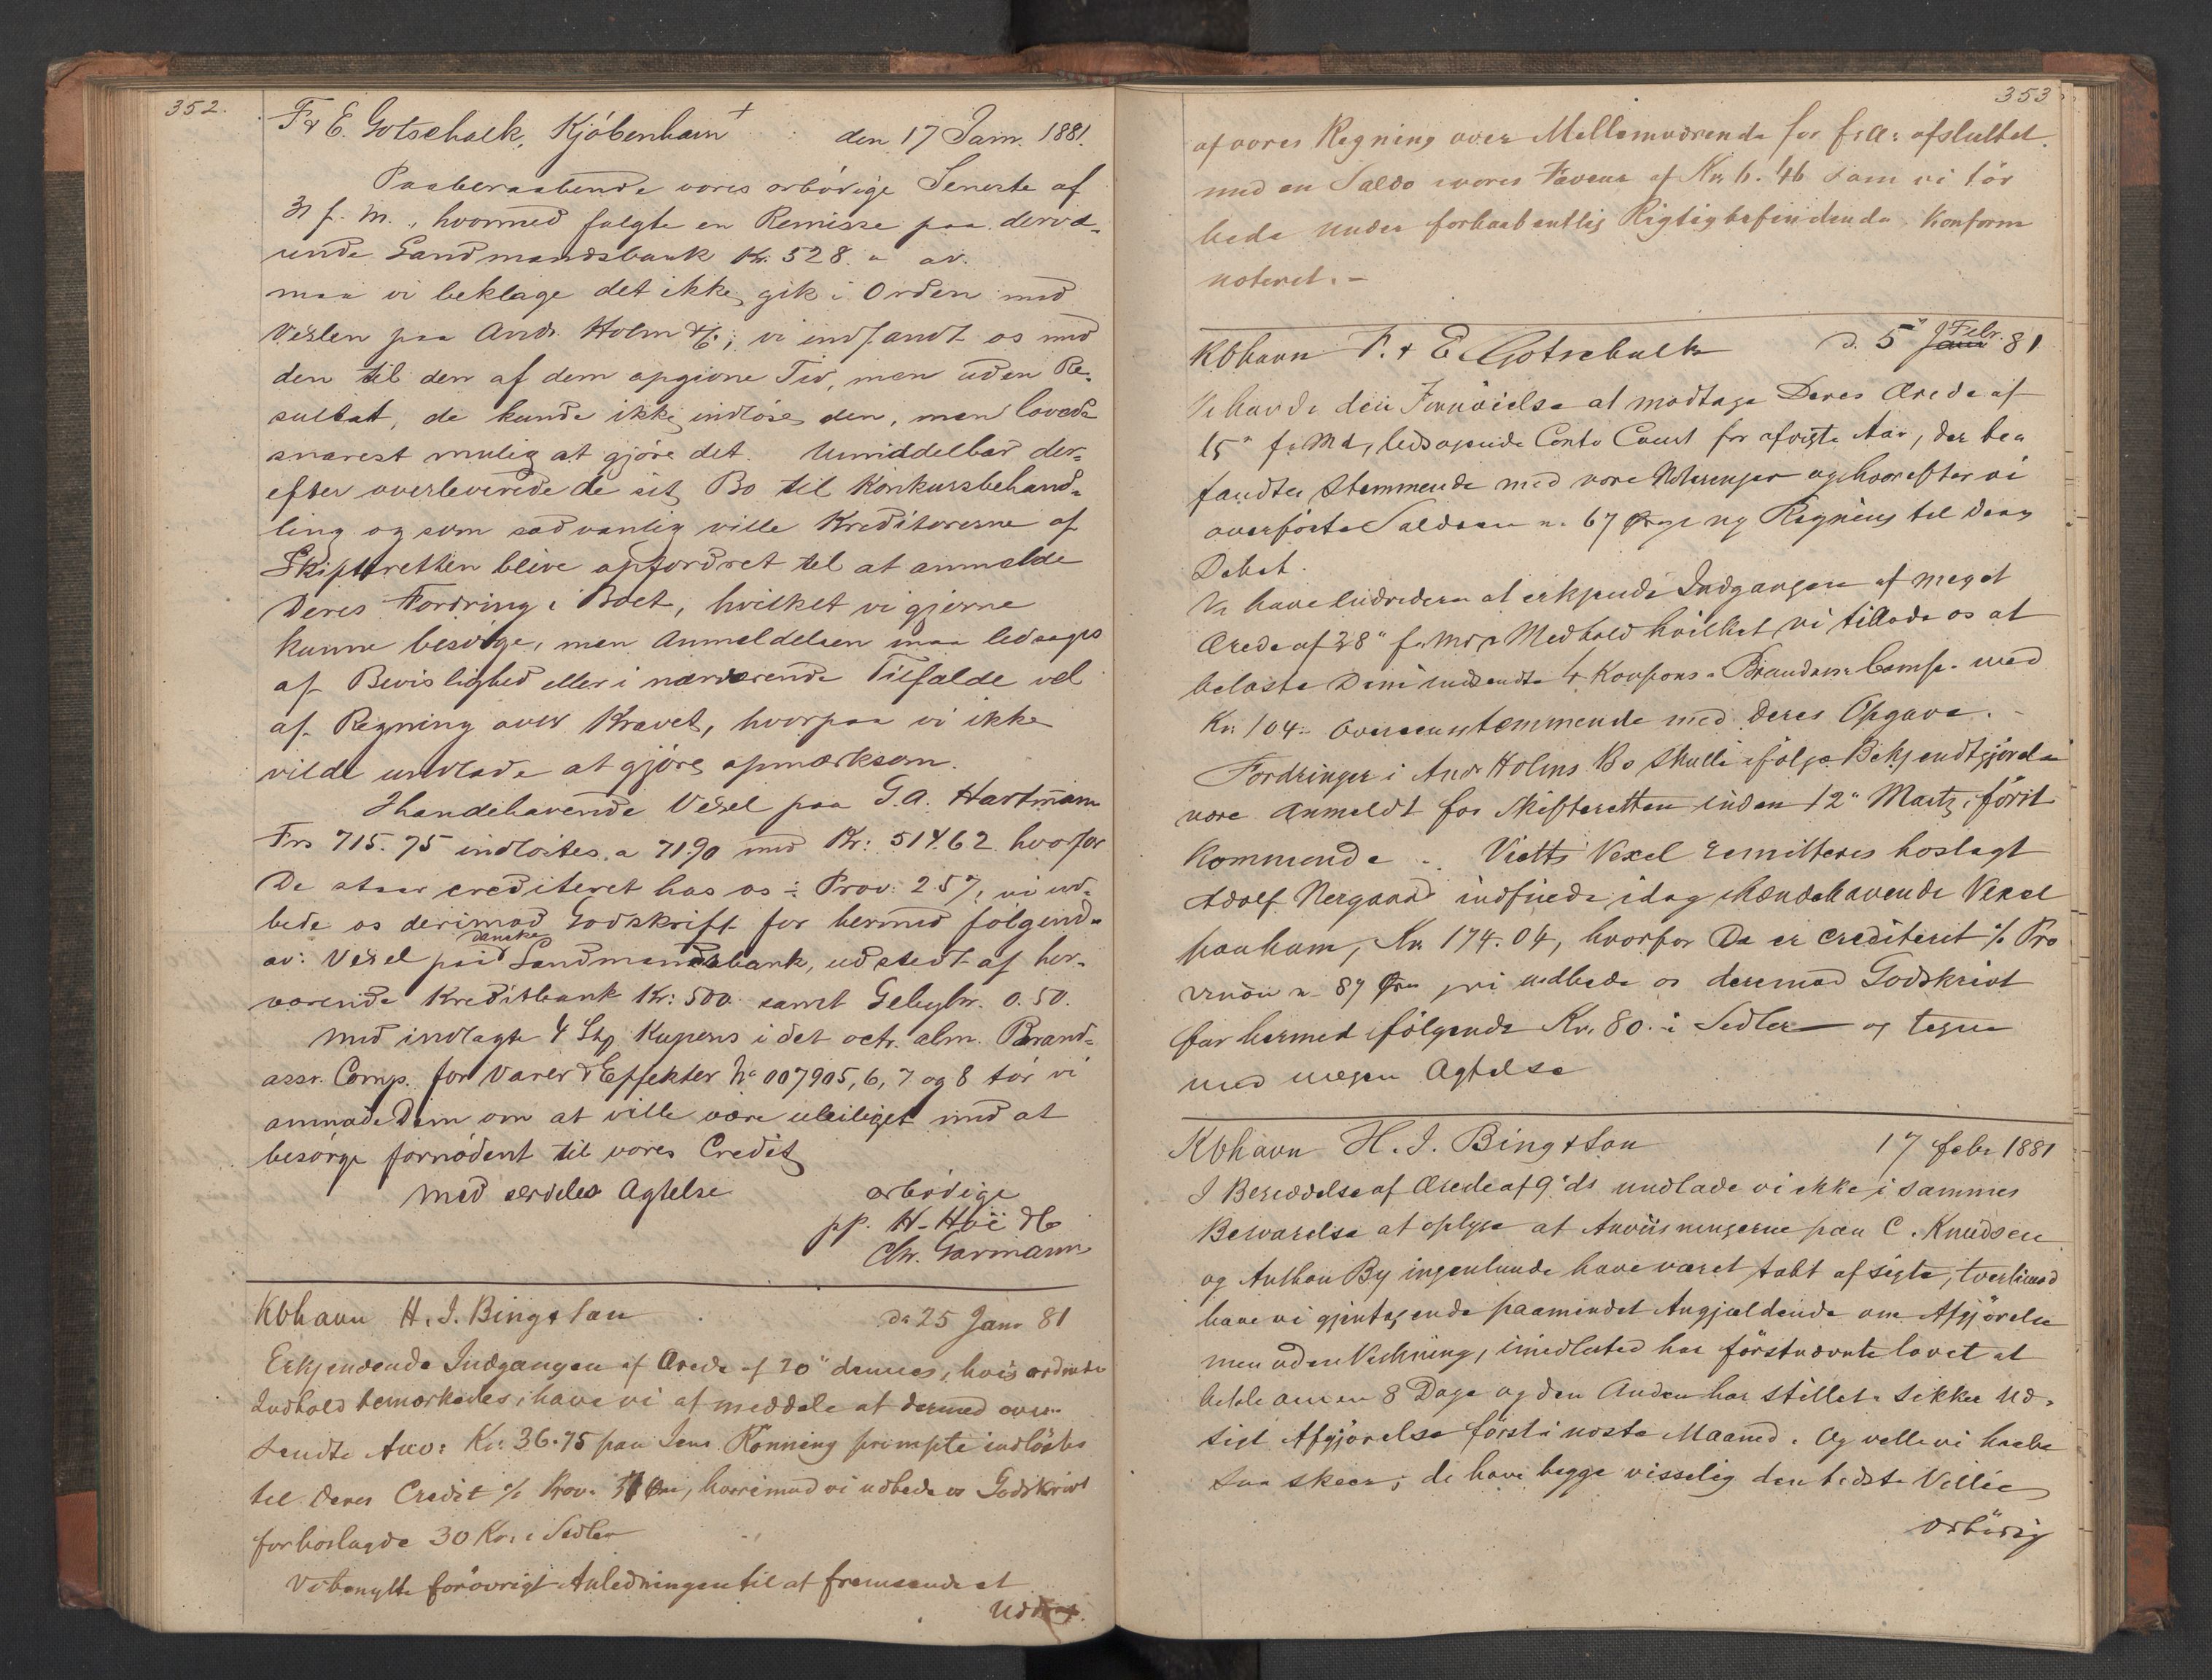 352.
F & E. Gotschalk, Kjöbenhavn den 17 Janr. 1881.
Paaberaabende vores ærbödige Seneste af
31 f. M., hvormed fulgte en Remisse paa derværende
Landmandsbank Kr. 528 " ør.
maa vi beklage det ikke gik i Orden med
Vexlen paa Andr. Holm & Co; vi indfandt os med
den til den af dem opgivne Tid, men uden Re-
sultat, de kunde ikke indlöse den, men lovede
snarest mulig at gjöre det. Umiddelbar der-
efter overleverede de sit Bo til Konkursbehand-
ling og som sædvanlig ville Kreditorerne af
Skifteretten blive opfordret til at anmelde
Deres Fordring i Boet, hvilket vi gjerne
kunne besörge, men Anmeldelsen maa ledsages
af Bevislighed eller i nærværende Tilfælde vel
af Regning over Kravet, hvorpaa vi ikke
vilde undlade at gjöre opmærksom.
Ihændehavende Vexel paa G. A. Hartmann
Frs 715.75 indlöstes a 71.90 med Kr: 514.62 hvorfor
De staar crediteret hos os ÷ Prov: 257, vi ud-
bede os derimod Godskrift for hermed fölgende
av: Vexel paa danske Landmandsbank, udstedt af her-
værende Kreditbank Kr: 500. samt Gebyhr. 0.50.
Med indlagte 4 Stp Kupons i det octr. alm. Brand-
assr. Comp. for Varer & Effekter No 007905, 6, 7 og 8 tör vi
anmode Dem om at ville være uleiliget med at
besörge fornödent til vores Credit
Med særdeles Agtelse ærbödigst
pp. H. Höe & Co
Chr. Garmann
Kbhavn H. J. Bing & Sön d. 25 Janr 81
Erkjendende Indgangen af Ærede af 20" dennes, hvis ærede
Indhold bemærkedes, have vi at meddele at dermed over-
sendte Anv: Kr: 36.75 paa Jens Rönning prompte indlöstes
til Deres Credit % Prov. Öre, hvorimod vi udbede os Godskrivt
for hoslagde 30 Kr. i Sedler
Vi benytte forövrigt Anledningen til at fremsende et
Uddrag.
353
af vores Regning over Mellemværende for f. A: afsluttet
med en Saldo i vores Faveur af Kr. 6.46 som vi tör
bede under forhaabentlig Rigtigbefindende Konform
noteret. –
Kbhavn F. & E. Gotschalk d. 5" Janr Febr. 81
Vi havde den Fornöielse at modtage Deres Ærede af
15" f. Md, ledsagende Conto Court for afvigte Aar, der be-
fandtes stemmende med vore Noteringer og hvorefter vi
overförte Saldoen n. 67 Öre paa ny Regning til Deres
Debet.
Vi have endvidere at erkjende Indgangen af meget
Ærede af 28" f. Md, i Medhold hvilket vi tillade os at
belaste Dem indsendte 4 Koupons - Brandass. Comp. med
Kr. 104.- overensstemmende med Deres Opgave. –
Fordringer i Andr Holms Bo skulle ifölge Bekjendtgjörelse
være anmeldt for Skifteretten inden 12" Marts förit
kommende . Vietts Vexel remitteres hoslagt
Adolf Nergaard indfriede idag ihændehavende Vexel
paa ham, Kr. 174.04, hvorfor De er crediteret % Pro
vision n. 87 Öre, vi udbede os derimod Godskrivt
for hermed fölgende Kr. 80. i Sedler og tegne
med megen Agtelse
Kbhavn H. J. Bing & Sön 17 Febr 1881
I Besiddelse af Ærede af 9" ds undlade vi ikke i sammes
Besvarelse at oplyse at Anviisningerne paa C. Knudsen
og Anthon By ingenlunde have været tabt af sigte, tvertimod
have vi gjentagende paamindet Angjældende om Afgjörelse
men uden Virkning, imidlertid har förstnævnte lovet at
betale om en 8 Dage og den Anden har stillet i sikker Ud-
sigt Afgjörelse först i næste Maaned. Og ville vi haabe
saa skeer; de have begge visselig den bedste Villie
ærbödig